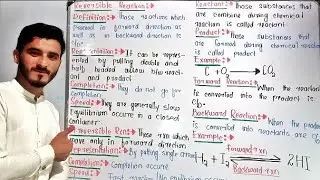 Reversible Reaction:
Definition: Those reactions which
proceed in forward direction as
well as in backward direction is
Representation: It can be repres-
ented by putting double and
half headed arrow b/w react-
ant and product
Completion: They do not go
completion.
Speed: They are generally slow
Equilibrium occurs in a closed
container.
Irreversible Rxn: Those rxn which
move only in forward direction
Representation: By putting single arrow
Completion: Completion occurs
Reactant: Those substances that
are combine during chemical
reaction is called reactant
Product: Those substances that
are formed during chemical reaction
is called product.
Example:
C + O₂ → CO₂
Forward Reaction: When the reactant
is converted into the product is
Backward Reaction: When the product
is converted into reactants are
Example: Forward rxn
H₂ + I₂ 2HI
Backward rxn